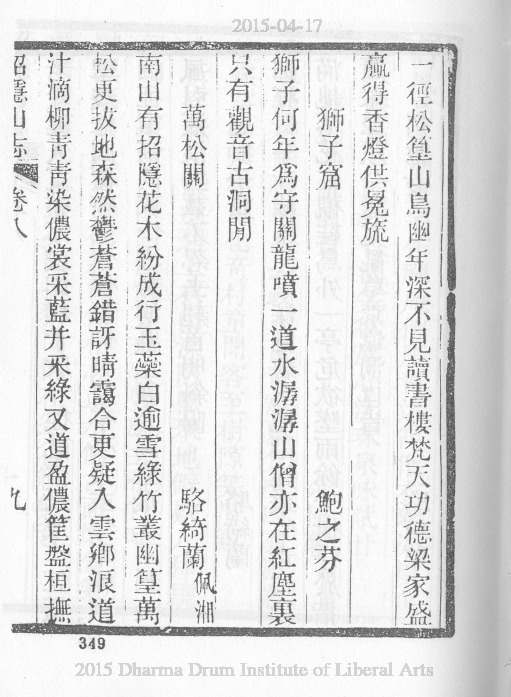 2015-04-17
一徑松篁山鳥幽年深不見讀書樓梵天功德梁家盛
贏得香燈供冕旒
獅子窟 鮑之芬
獅子何年爲守關龍噴一道水潺潺山僧亦在紅塵裏
只有觀音古洞閒
萬松關 駱綺蘭佩湘
南山有招隱花木紛成行玉蘂白逾雪綠竹叢幽篁萬
松更拔地森然鬱蒼蒼錯訝晴靄合更疑入雲鄉浪道
汁滴柳靑靑染儂裳采藍并采綠又道盈儂筐盤桓撫
招隱山志 卷八 九
349
2015 Dharma Drum Institute of Liberal Arts